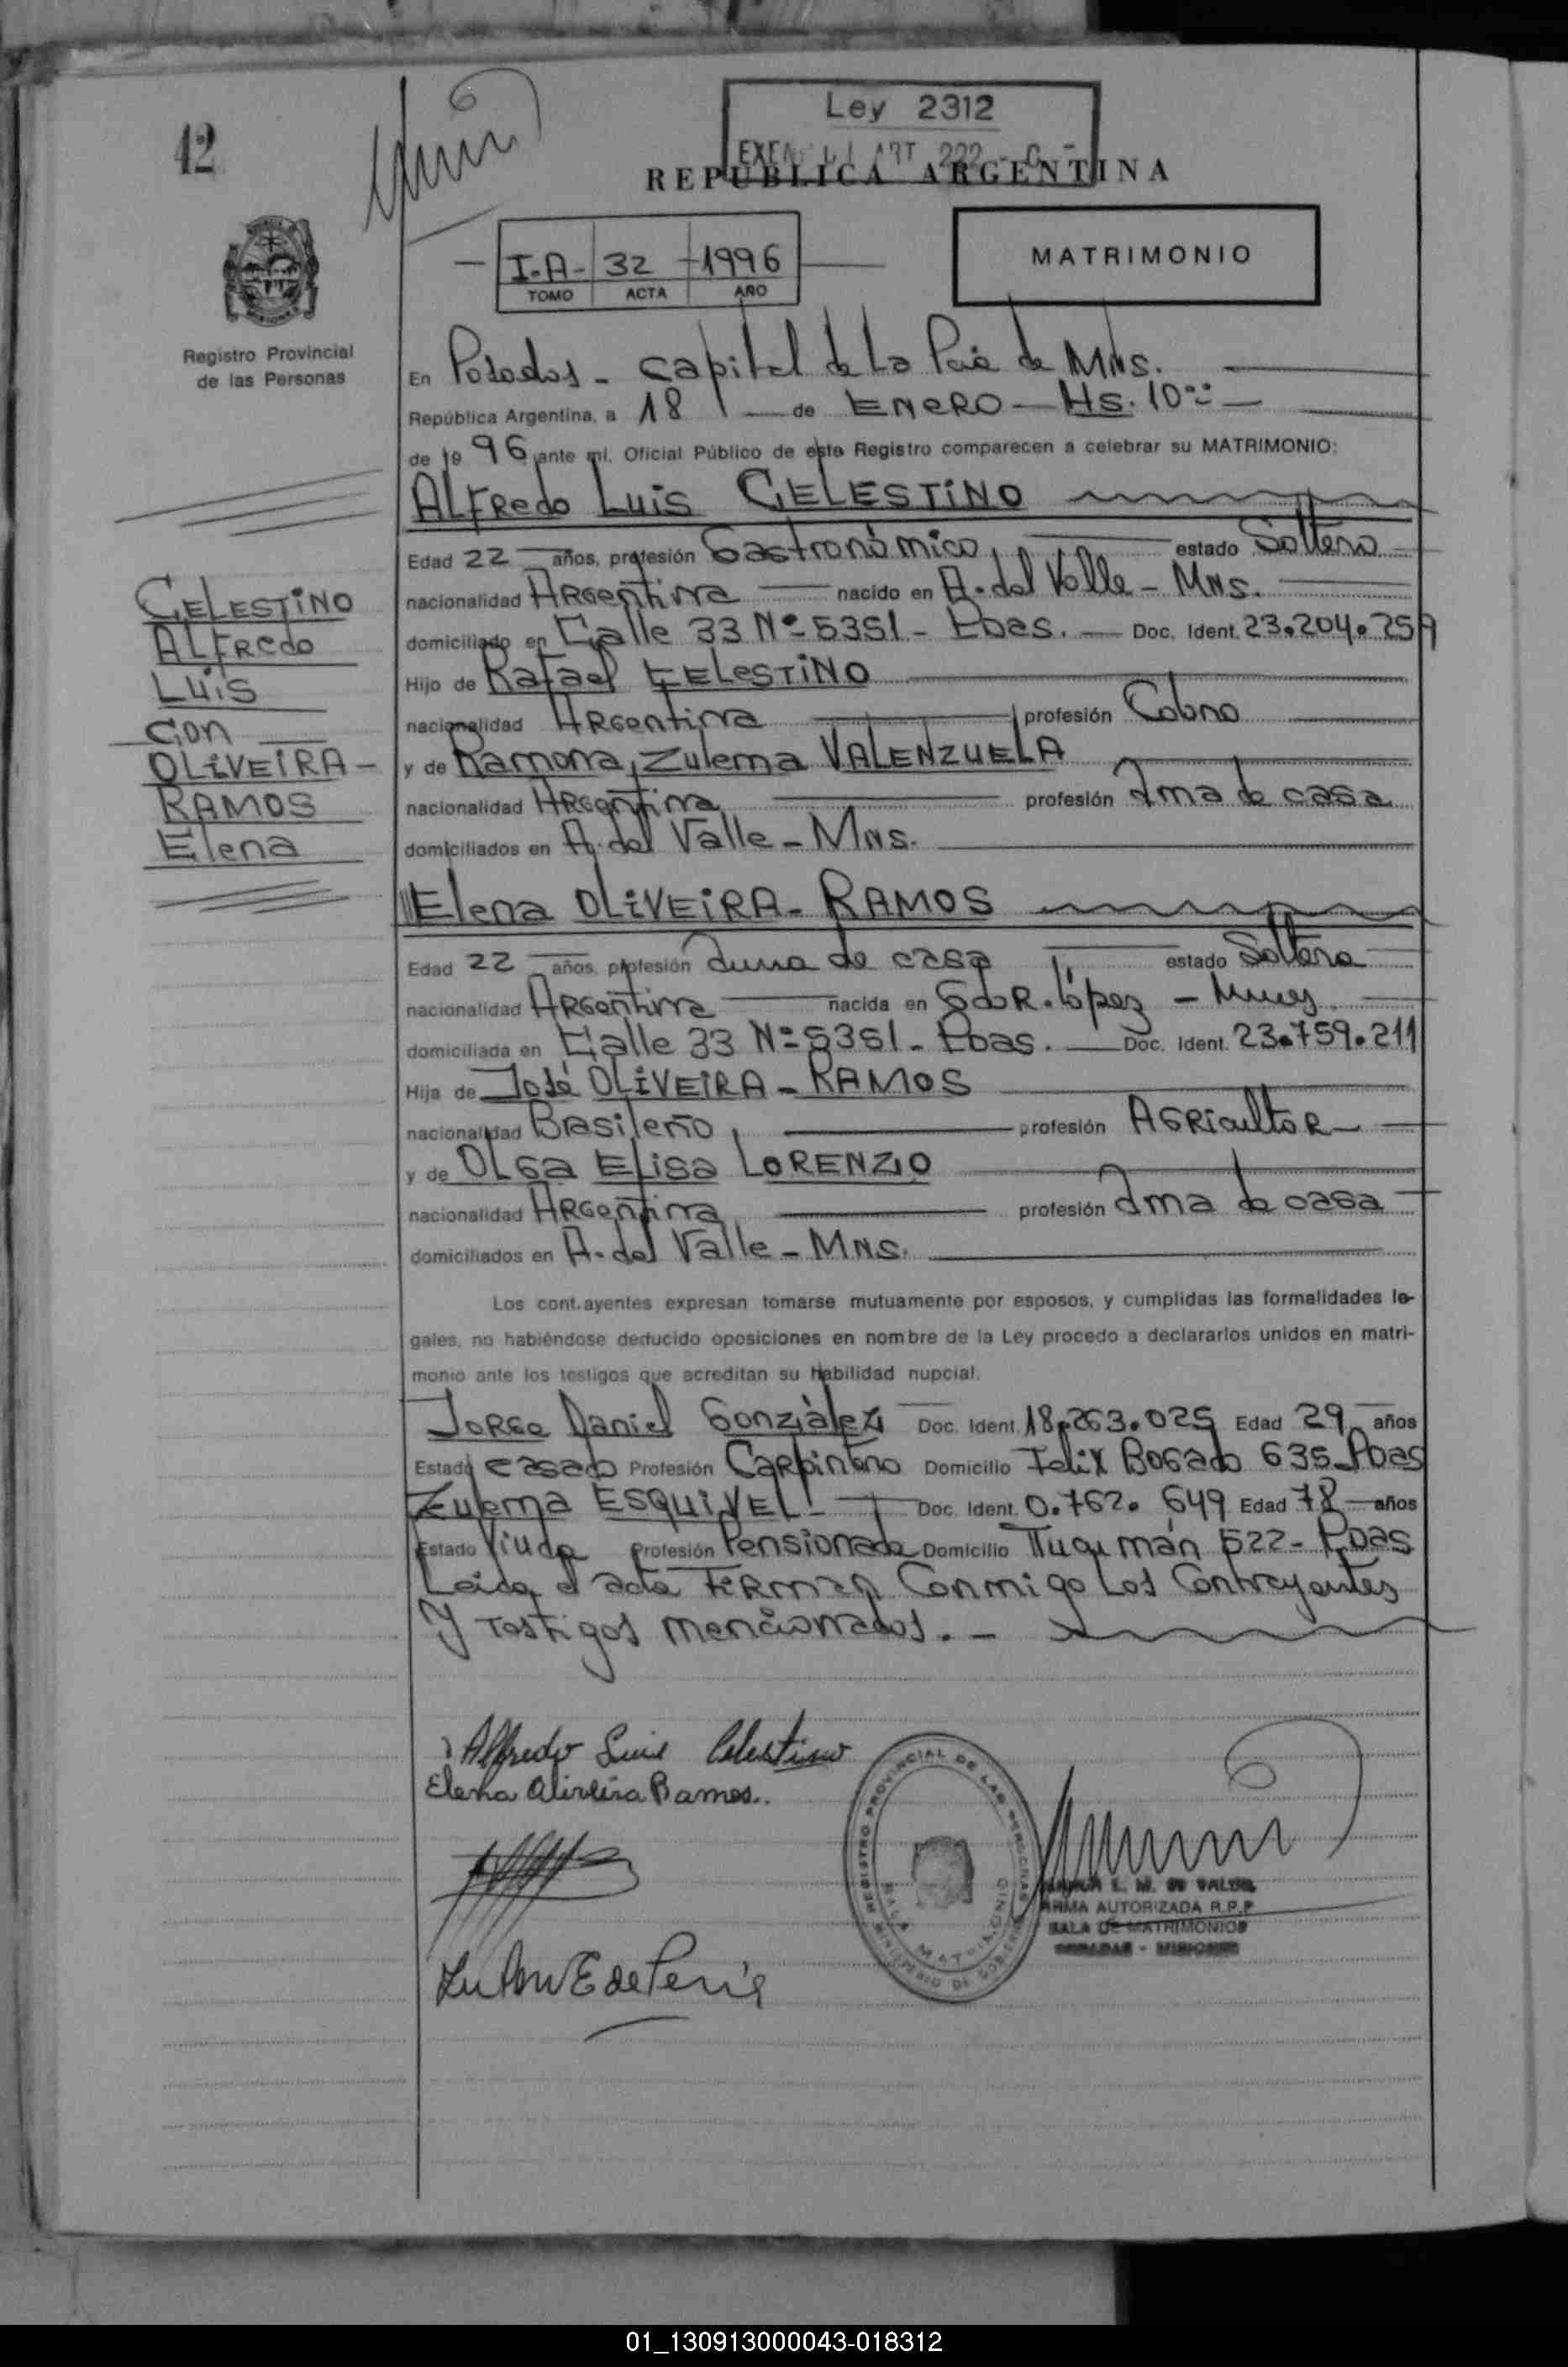 42
Ley 2312
REPUBLICA ARGENTINA
I-A- 32 -1996
TOMO ACTA AÑO
MATRIMONIO
Registro Provincial
de las Personas
En Posadas - Capital de La Pcia de MNS.
República Argentina, a 18 de ENERO - Hs. 10
de 19 96 ante mi, Oficial Público de este Registro comparecen a celebrar su MATRIMONIO:
ALFRedo Luis CELESTINO
Edad 22 años, profesión Gastronómico estado Soltero
nacionalidad ARGentina nacido en A. del Valle - MNS.
domiciliado en Calle 33 Nº 5351 - Pdas. Doc. Ident. 23.204.259
Hijo de Rafael CELESTINO
nacionalidad ARGentina profesión Colono
y de Ramona Zulema VALENZUELA
nacionalidad ARGentina profesión Ama de casa
domiciliados en A. del Valle - MNS.
CELESTINO
ALFRedo
LUIS
Con
OLIVEIRA-
RAMOS
Elena
Elena OLIVEIRA - RAMOS
Edad 22 años, profesión Ama de casa estado Soltera
nacionalidad ARGentina nacida en GdoR. López - Mnes
domiciliada en Calle 33 Nº 5351 - Pdas. Doc. Ident. 23.759.211
Hija de José OLIVEIRA - RAMOS
nacionalidad Brasileño profesión AGRicultoR
y de OLGa ELisa LORENZIO
nacionalidad ARGentina profesión Ama de casa
domiciliados en A. del Valle - MNS.
Los cont.ayentes expresan tomarse mutuamente por esposos, y cumplidas las formalidades le-
gales, no habiéndose deducido oposiciones en nombre de la Ley procedo a declararlos unidos en matri-
monio ante los testigos que acreditan su habilidad nupcial.
JoRGe Daniel González Doc. Ident. 18.263.025 Edad 29 años
Estado casado Profesión Carpintero Domicilio Felix Bogado 635 - Pdas
Zulema ESQUIVEL Doc. Ident. 0.762.649 Edad 78 años
Estado Viuda Profesión Pensionada Domicilio Tucumán 522 - Pdas
Leida el acta FiRman Conmigo Los Contrayentes
Y Testigos mencionados. -
Alfredo Luis Celestino
Elena Oliveira Ramos.
REGISTRO PROVINCIAL DE LAS PERSONAS
MINISTERIO DE GOBIERNO
FIRMA AUTORIZADA R.P.P
SALA DE MATRIMONIOS
POSADAS - MISIONES
01_130913000043-018312